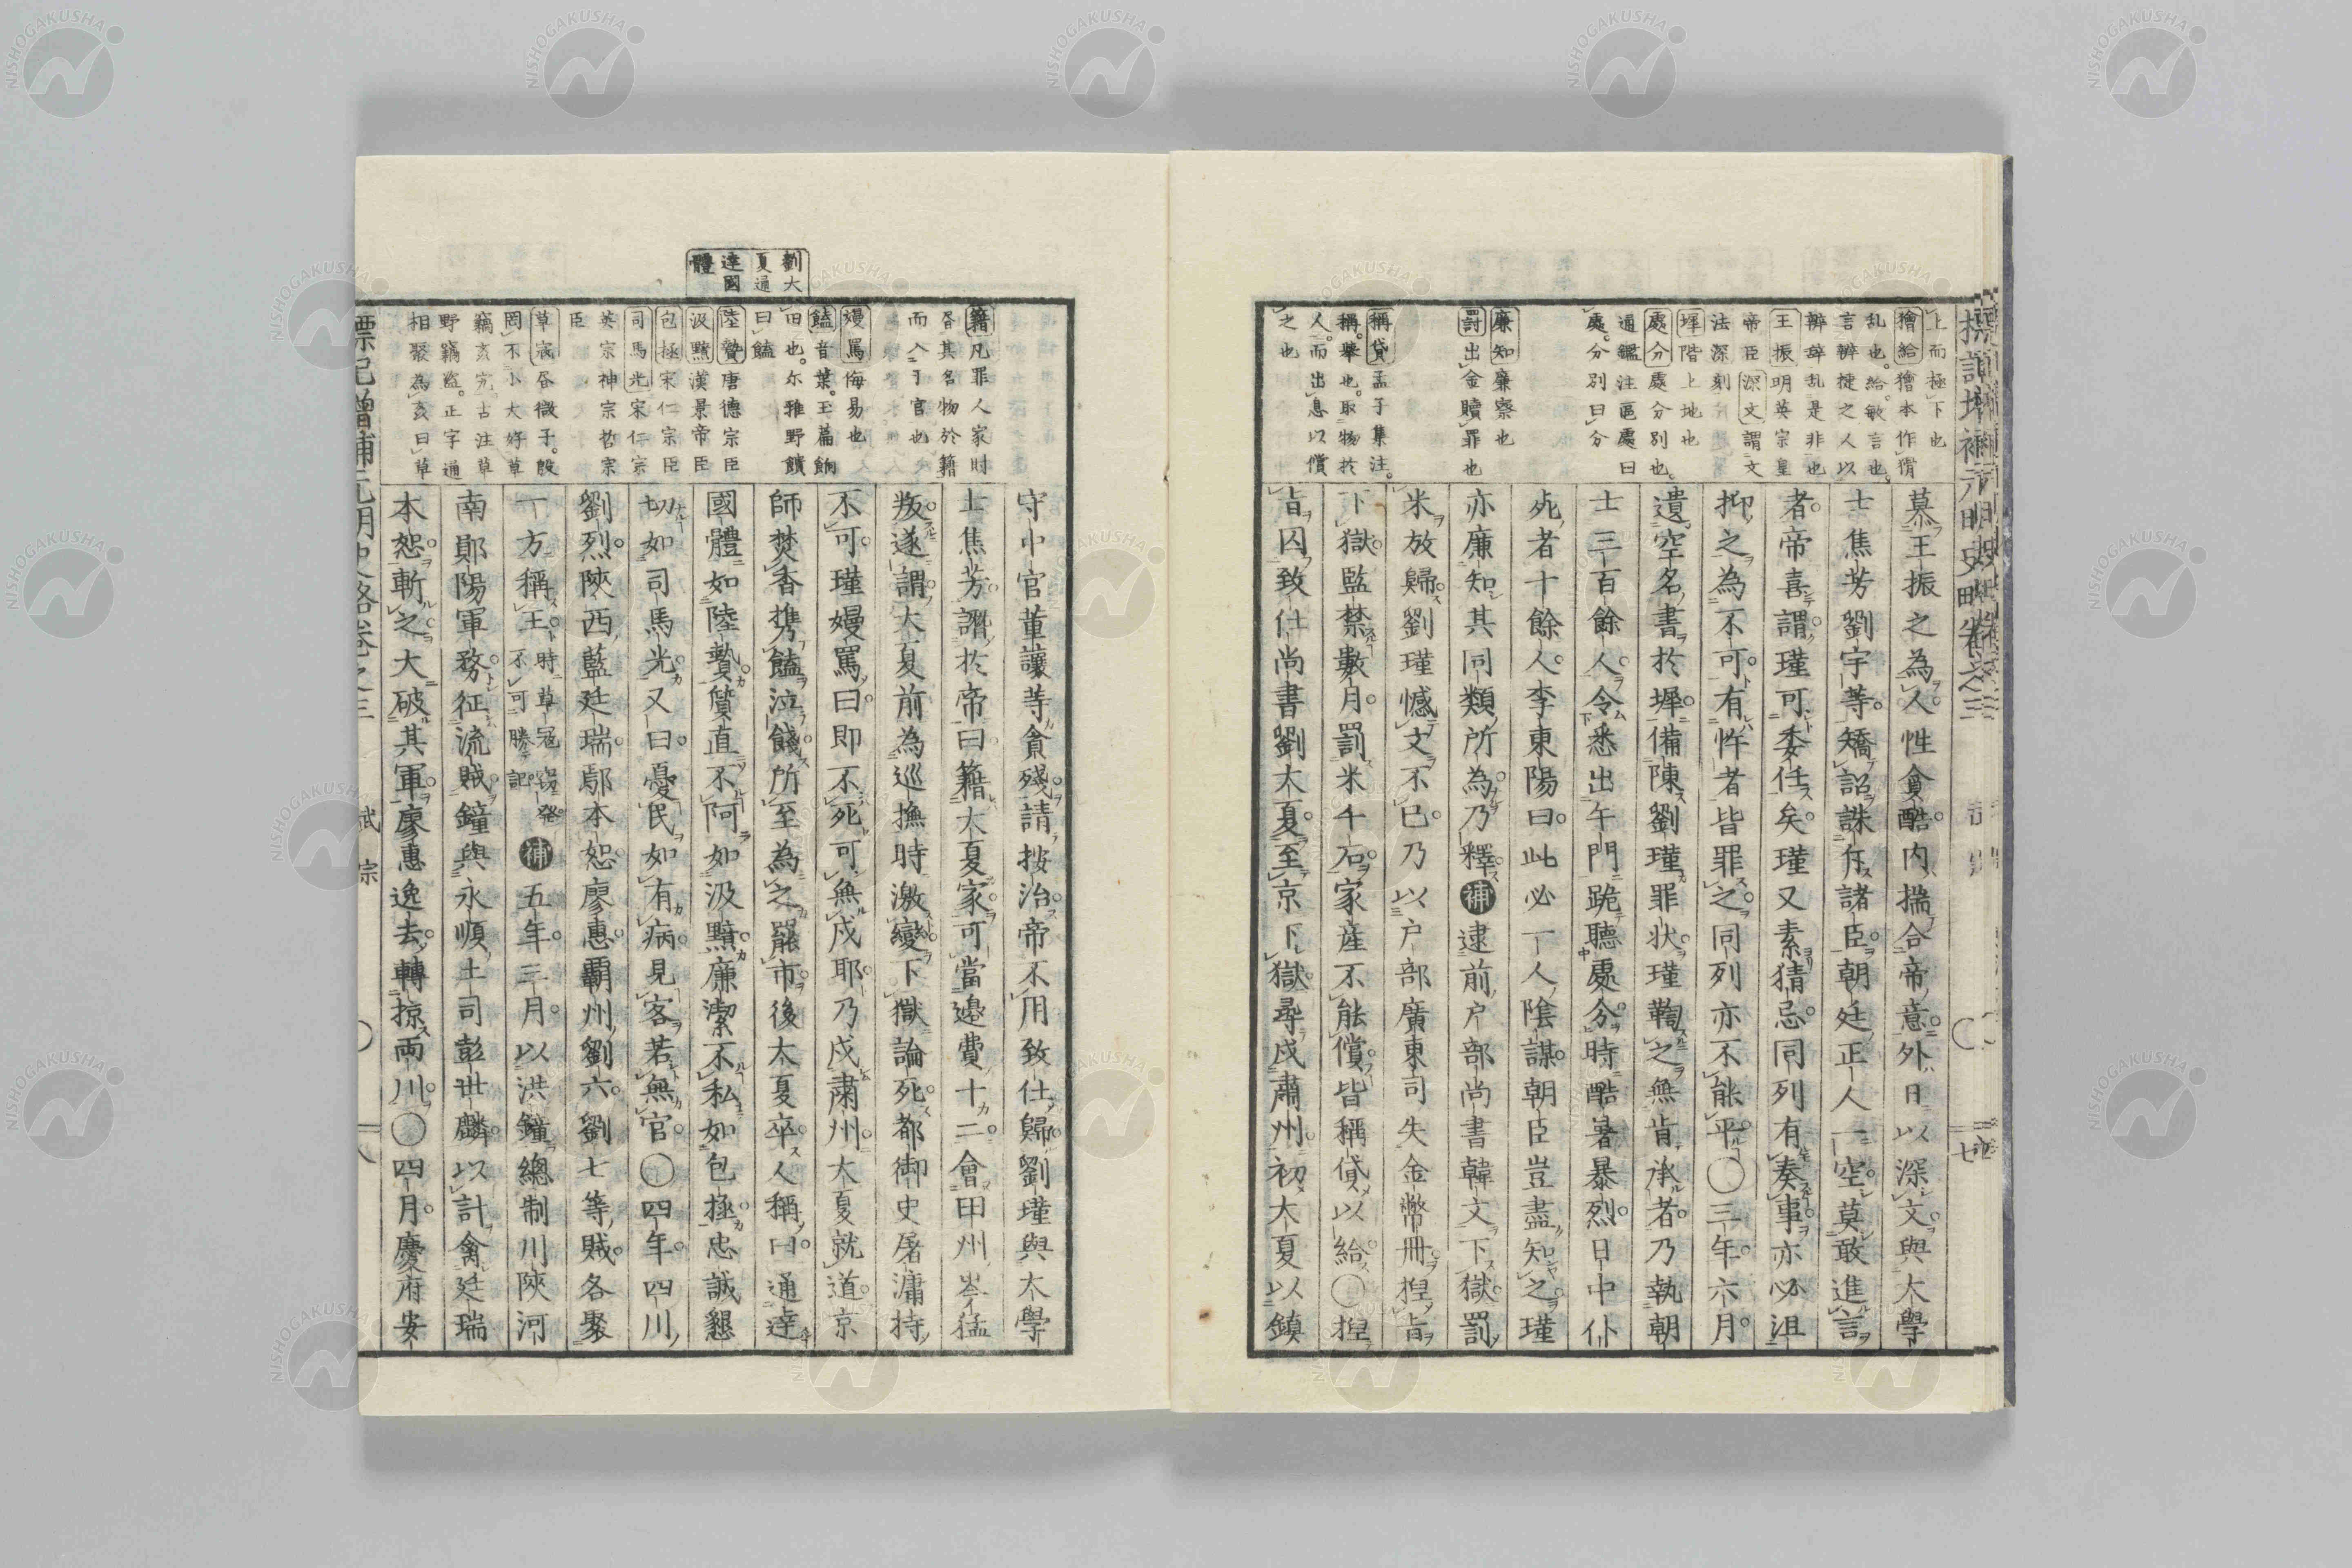 上而極下也
獪給獪本作猾
乱也。給。敏言也。
言辨捷之人以
辨辞乱是非也
王振明英宗皇
帝臣深文謂文
法深刻
墀階上地也
處分處分別也。
通鑑注區處曰
處。分別曰分
廉知廉察也
罰出金贖罪也
稱貸孟子集注。
稱。舉也。取物於
人。而出息以償
之也
慕王振之為人性貪酷内揣合帝意外日以深文與大學
士焦芳劉宇等矯詔誅斥諸臣朝廷正人一空莫敢進言
者帝喜謂瑾可委任矣瑾又素猜忌同列有奏事亦必沮
抑之為不可有忤者皆罪之同列亦不能平〇三年六月
遺空名書於墀備陳劉瑾罪状瑾鞫之無肯承者乃執朝
士三百餘人令悉出午門跪聽處分時酷暑暴烈日中仆
死者十餘人李東陽曰此必一人陰謀朝臣豈盡知之瑾
亦廉知其同類所為乃釋補逮前戸部尚書韓文下獄罰
米放歸劉瑾憾文不已乃以戸部廣東司失金幣冊捏旨
下獄監禁數月罰米千石家産不能償皆稱貸以給〇捏
旨囚致仕尚書劉大夏至京下獄尋戍肅州初大夏以鎮
劉大
夏通
達國
體
籍凡罪人家財
昏其名物於籍
而入于官也
嫚罵侮易也
饁音葉。玉篇餉
田也。尓雅野饋
曰饁
陸贄唐德宗臣
汲黯漢景帝臣
包拯宋仁宗臣
司馬光宋仁宗
英宗神宗哲宗
臣
草寇昏微子。殷
罔不小大好草
竊亥宄古注草
野竊盗。正字通
相聚為亥曰草
守中官董讓等貪殘請按治帝不用致仕歸劉瑾與大學
士焦芳譖於帝曰籍大夏家可當邊費十二會田州岑猛
叛遂謂大夏前為巡撫時激變下獄論死都御史屠滽持
不可瑾嫚罵曰即不死可無戍耶乃戍肅州大夏就道京
師焚香攜饁泣餞所至為之罷市後大夏卒人稱曰通達
國體如陸贄質直不阿如汲黯廉潔不私如包拯忠誠懇
切如司馬光又曰憂民如有病見客若無官〇四年四川
劉烈陝西藍廷瑞鄢本恕廖惠覇州劉六劉七等賊各聚
一方稱王時草寇竊發不可勝記補五年三月以洪鐘總制川陝河
南鄖陽軍務征流賊鐘與永順土司彭世麟以計禽廷瑞
本恕斬之大破其軍廖惠逸去轉掠両川〇四月慶府安